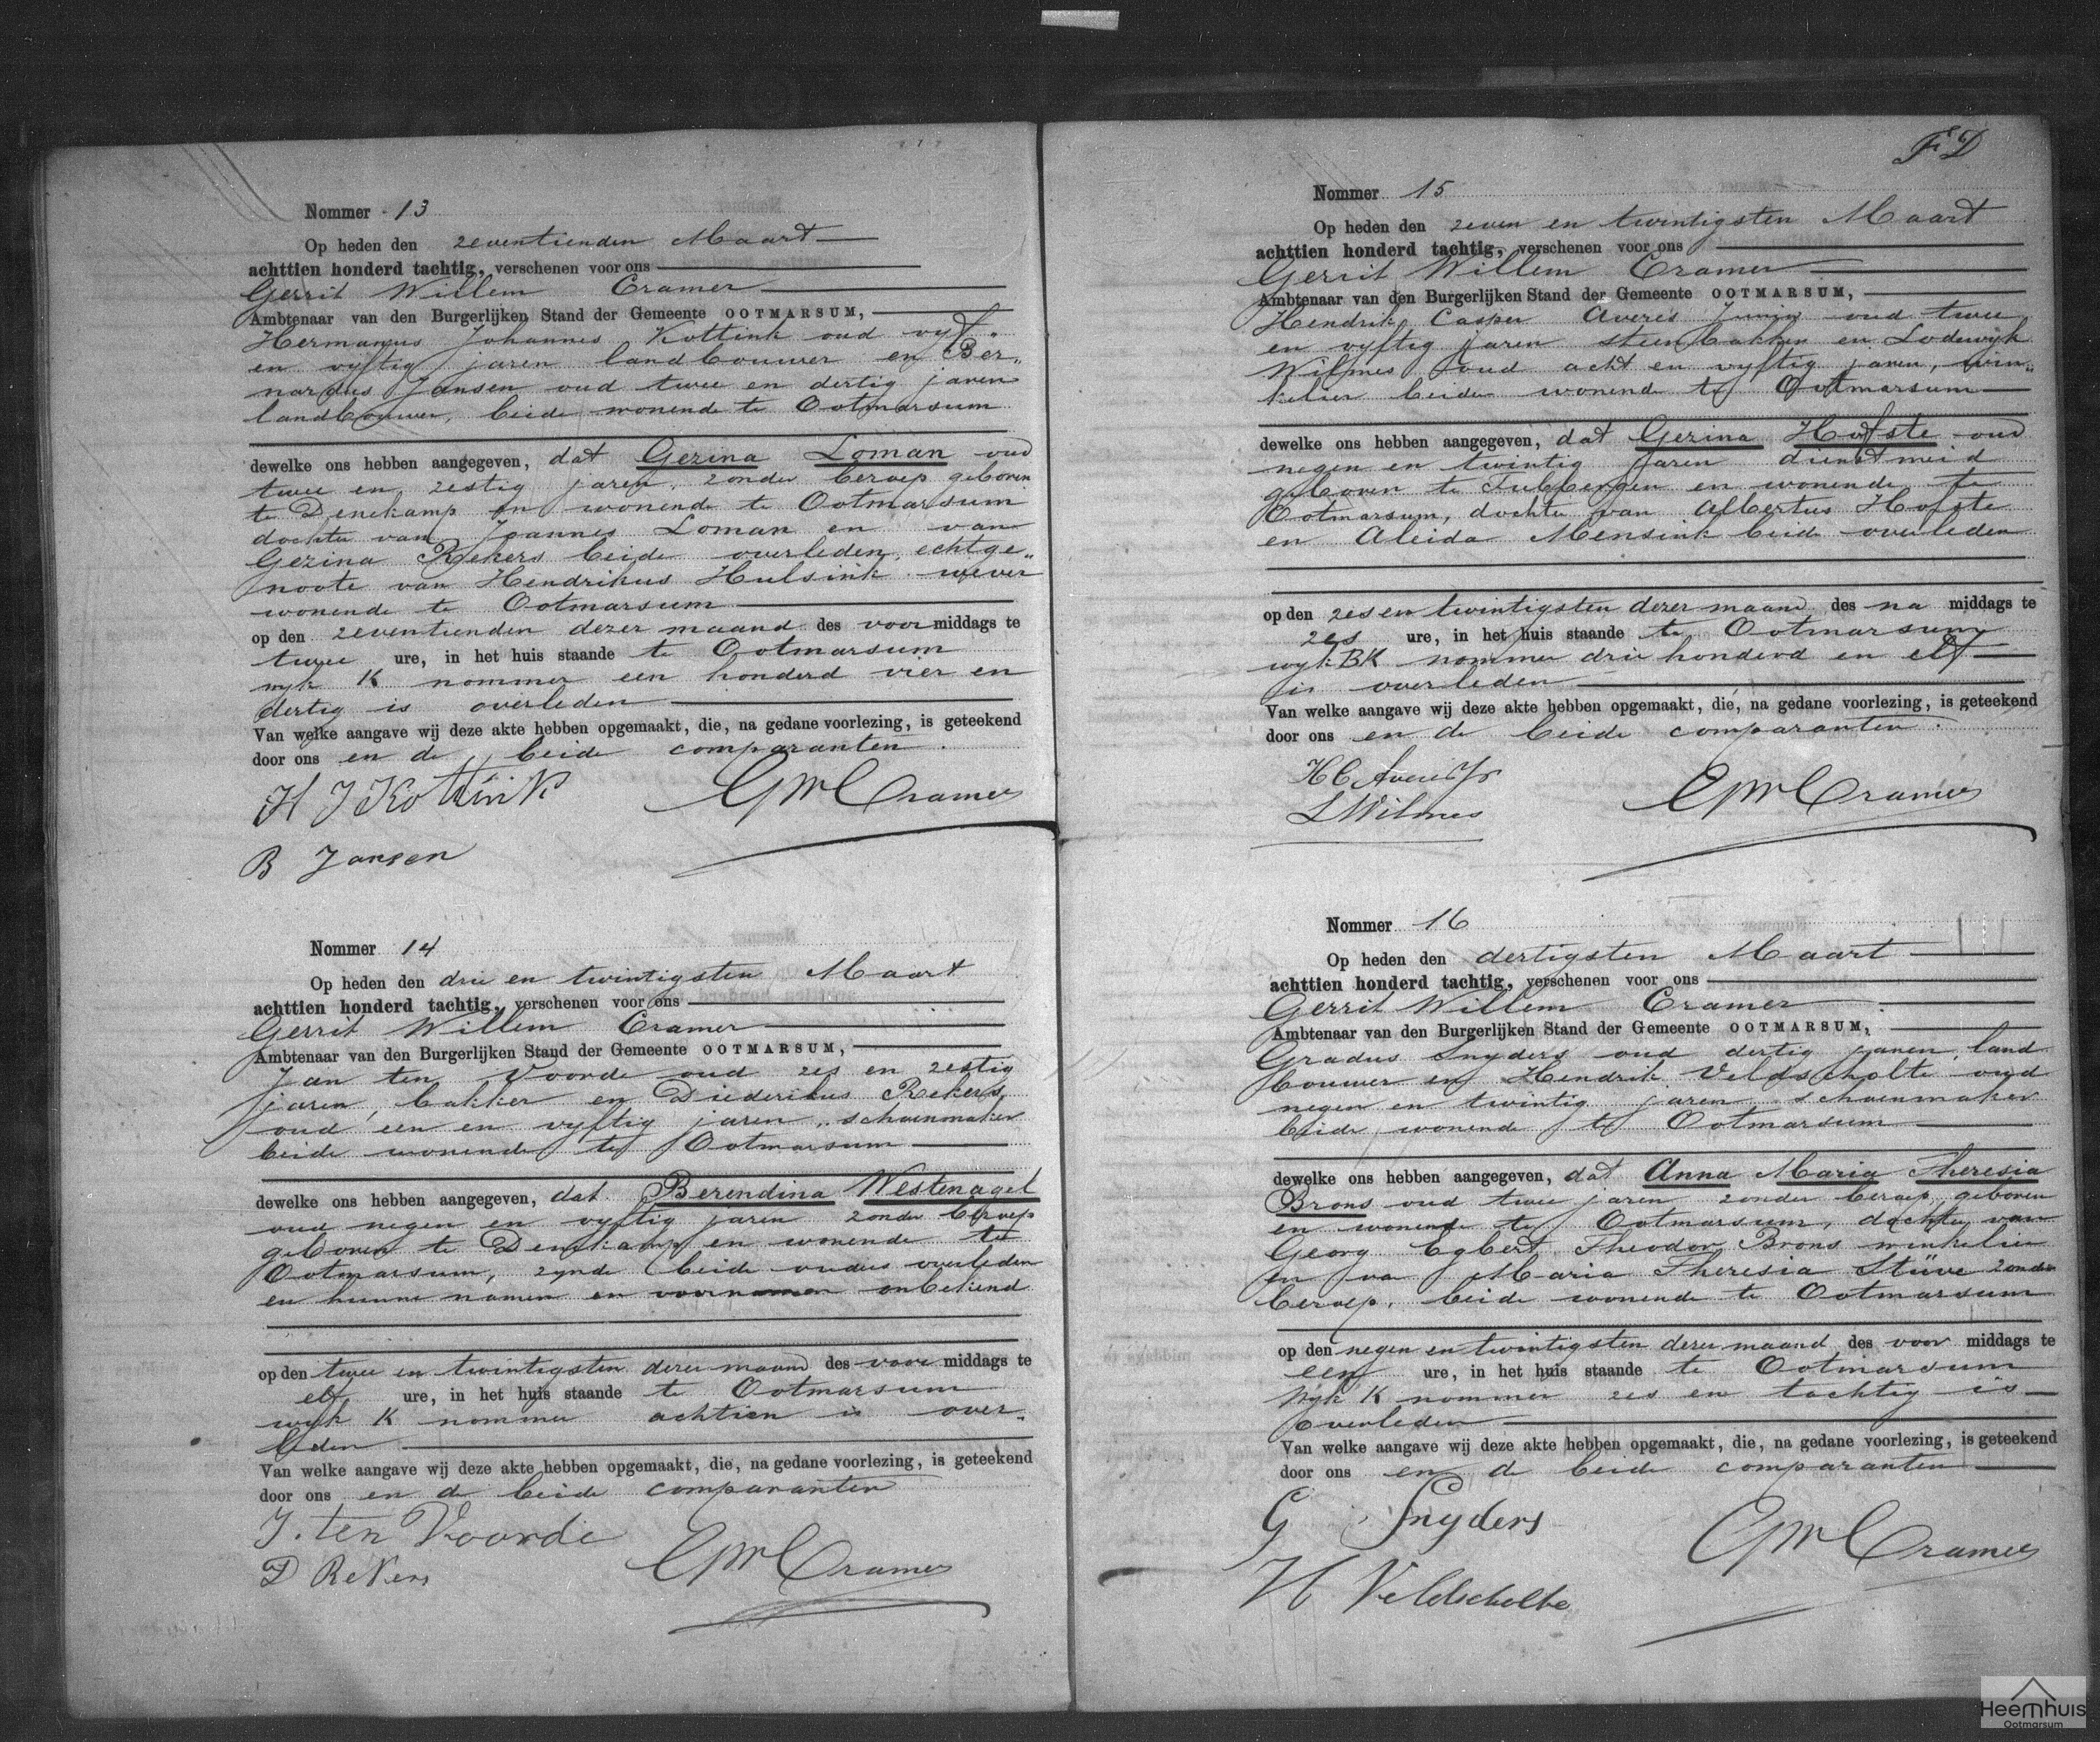 Nommer 13
Op heden den zeventienden Maart
achttien honderd tachtig, verschenen voor ons
Gerrit Willem Cramer
Ambtenaar van den Burgerlijken Stand der Gemeente OOTMARSUM,
Hermanus Johannes Kottink oud vyf
en vyftig jaren landbouwer en Ber„
nardus Jansen oud twee en dertig jaren
landbouwer, beide wonende te Ootmarsum
dewelke ons hebben aangegeven, dat Gezina Loman oud
twee en zestig jaren, zonder beroep geboren
te Denekamp en wonende te Ootmarsum
dochter van Joannes Loman en van
Gezina Rekers beide overleden, echtge„
noote van Hendrikus Hulsink wever
wonende te Ootmarsum
op den zeventienden dezer maand des voor middags te
twee ure, in het huis staande te Ootmarsum
wyk K nommer een honderd vier en
dertig is overleden
Van welke aangave wij deze akte hebben opgemaakt, die, na gedane voorlezing, is geteekend
door ons en de beide comparanten.
H J Kottink GWCramer
B Jansen
Nommer 14
Op heden den drie en twintigsten Maart
achttien honderd tachtig, verschenen voor ons
Gerrit Willem Cramer
Ambtenaar van den Burgerlijken Stand der Gemeente OOTMARSUM,
Jan ten Voorde oud zes en zestig
jaren, bakker en Diederikus Rekers,
oud een en vyftig jaren, schoenmaker
beide wonende te Ootmarsum
dewelke ons hebben aangegeven, dat Berendina Westenagel
oud negen en vyftig jaren zonder beroep
geboren te Denekamp en wonende te
Ootmarsum, zynde beide ouders overleden
en hunne namen en voornamen onbekend
op den twee en twintigsten dezer maand des voor middags te
elf ure, in het huis staande te Ootmarsum
wyk K nommer achtien is over„
leden
Van welke aangave wij deze akte hebben opgemaakt, die, na gedane voorlezing, is geteekend
door ons en de beide comparanten
J. ten Voorde
D Rekers GWCramer
F D
Nommer 15
Op heden den zeven en twintigsten Maart
achttien honderd tachtig, verschenen voor ons
Gerrit Willem Cramer
Ambtenaar van den Burgerlijken Stand der Gemeente OOTMARSUM,
Hendrik Casper Averes Junior oud twee
en vyftig jaren steenbakker en Lodewyk
Wilmes oud acht en vyftig jaren, win„
kelier beide wonende te Ootmarsum
dewelke ons hebben aangegeven, dat Gezina Hofste oud
negen en twintig jaren dienstmeid
geboren te Tubbergen en wonende te
Ootmarsum, dochter van Albertus Hofste
en Aleida Mensink beide overleden
op den zes en twintigsten dezer maand des na middags te
zes ure, in het huis staande te Ootmarsum
wyk BK nommer drie honderd en elf
is overleden
Van welke aangave wij deze akte hebben opgemaakt, die, na gedane voorlezing, is geteekend
door ons en de beide comparanten.
HC Averes Jr
L Wilmes GWCramer
Nommer 16
Op heden den dertigsten Maart
achttien honderd tachtig, verschenen voor ons
Gerrit Willem Cramer
Ambtenaar van den Burgerlijken Stand der Gemeente OOTMARSUM,
Gradus Snyders oud dertig jaren, land
bouwer en Hendrik Veldscholte oud
negen en twintig jaren schoenmaker
beide wonende te Ootmarsum
dewelke ons hebben aangegeven, dat Anna Maria Theresia
Brons oud twee jaren zonder beroep, geboren
en wonende te Ootmarsum, dochter van
Georg Egbert Theodor Brons winkelier
en va Maria Theresia Stüve zonder
beroep, beide wonende te Ootmarsum
op den negen en twintigsten dezer maand des voor middags te
een ure, in het huis staande te Ootmarsum
Wyk K nommer zes en tachtig is
overleden
Van welke aangave wij deze akte hebben opgemaakt, die, na gedane voorlezing, is geteekend
door ons en de beide comparanten
G Snyders GWCramer
H Veldscholte
Heemhuis
Ootmarsum